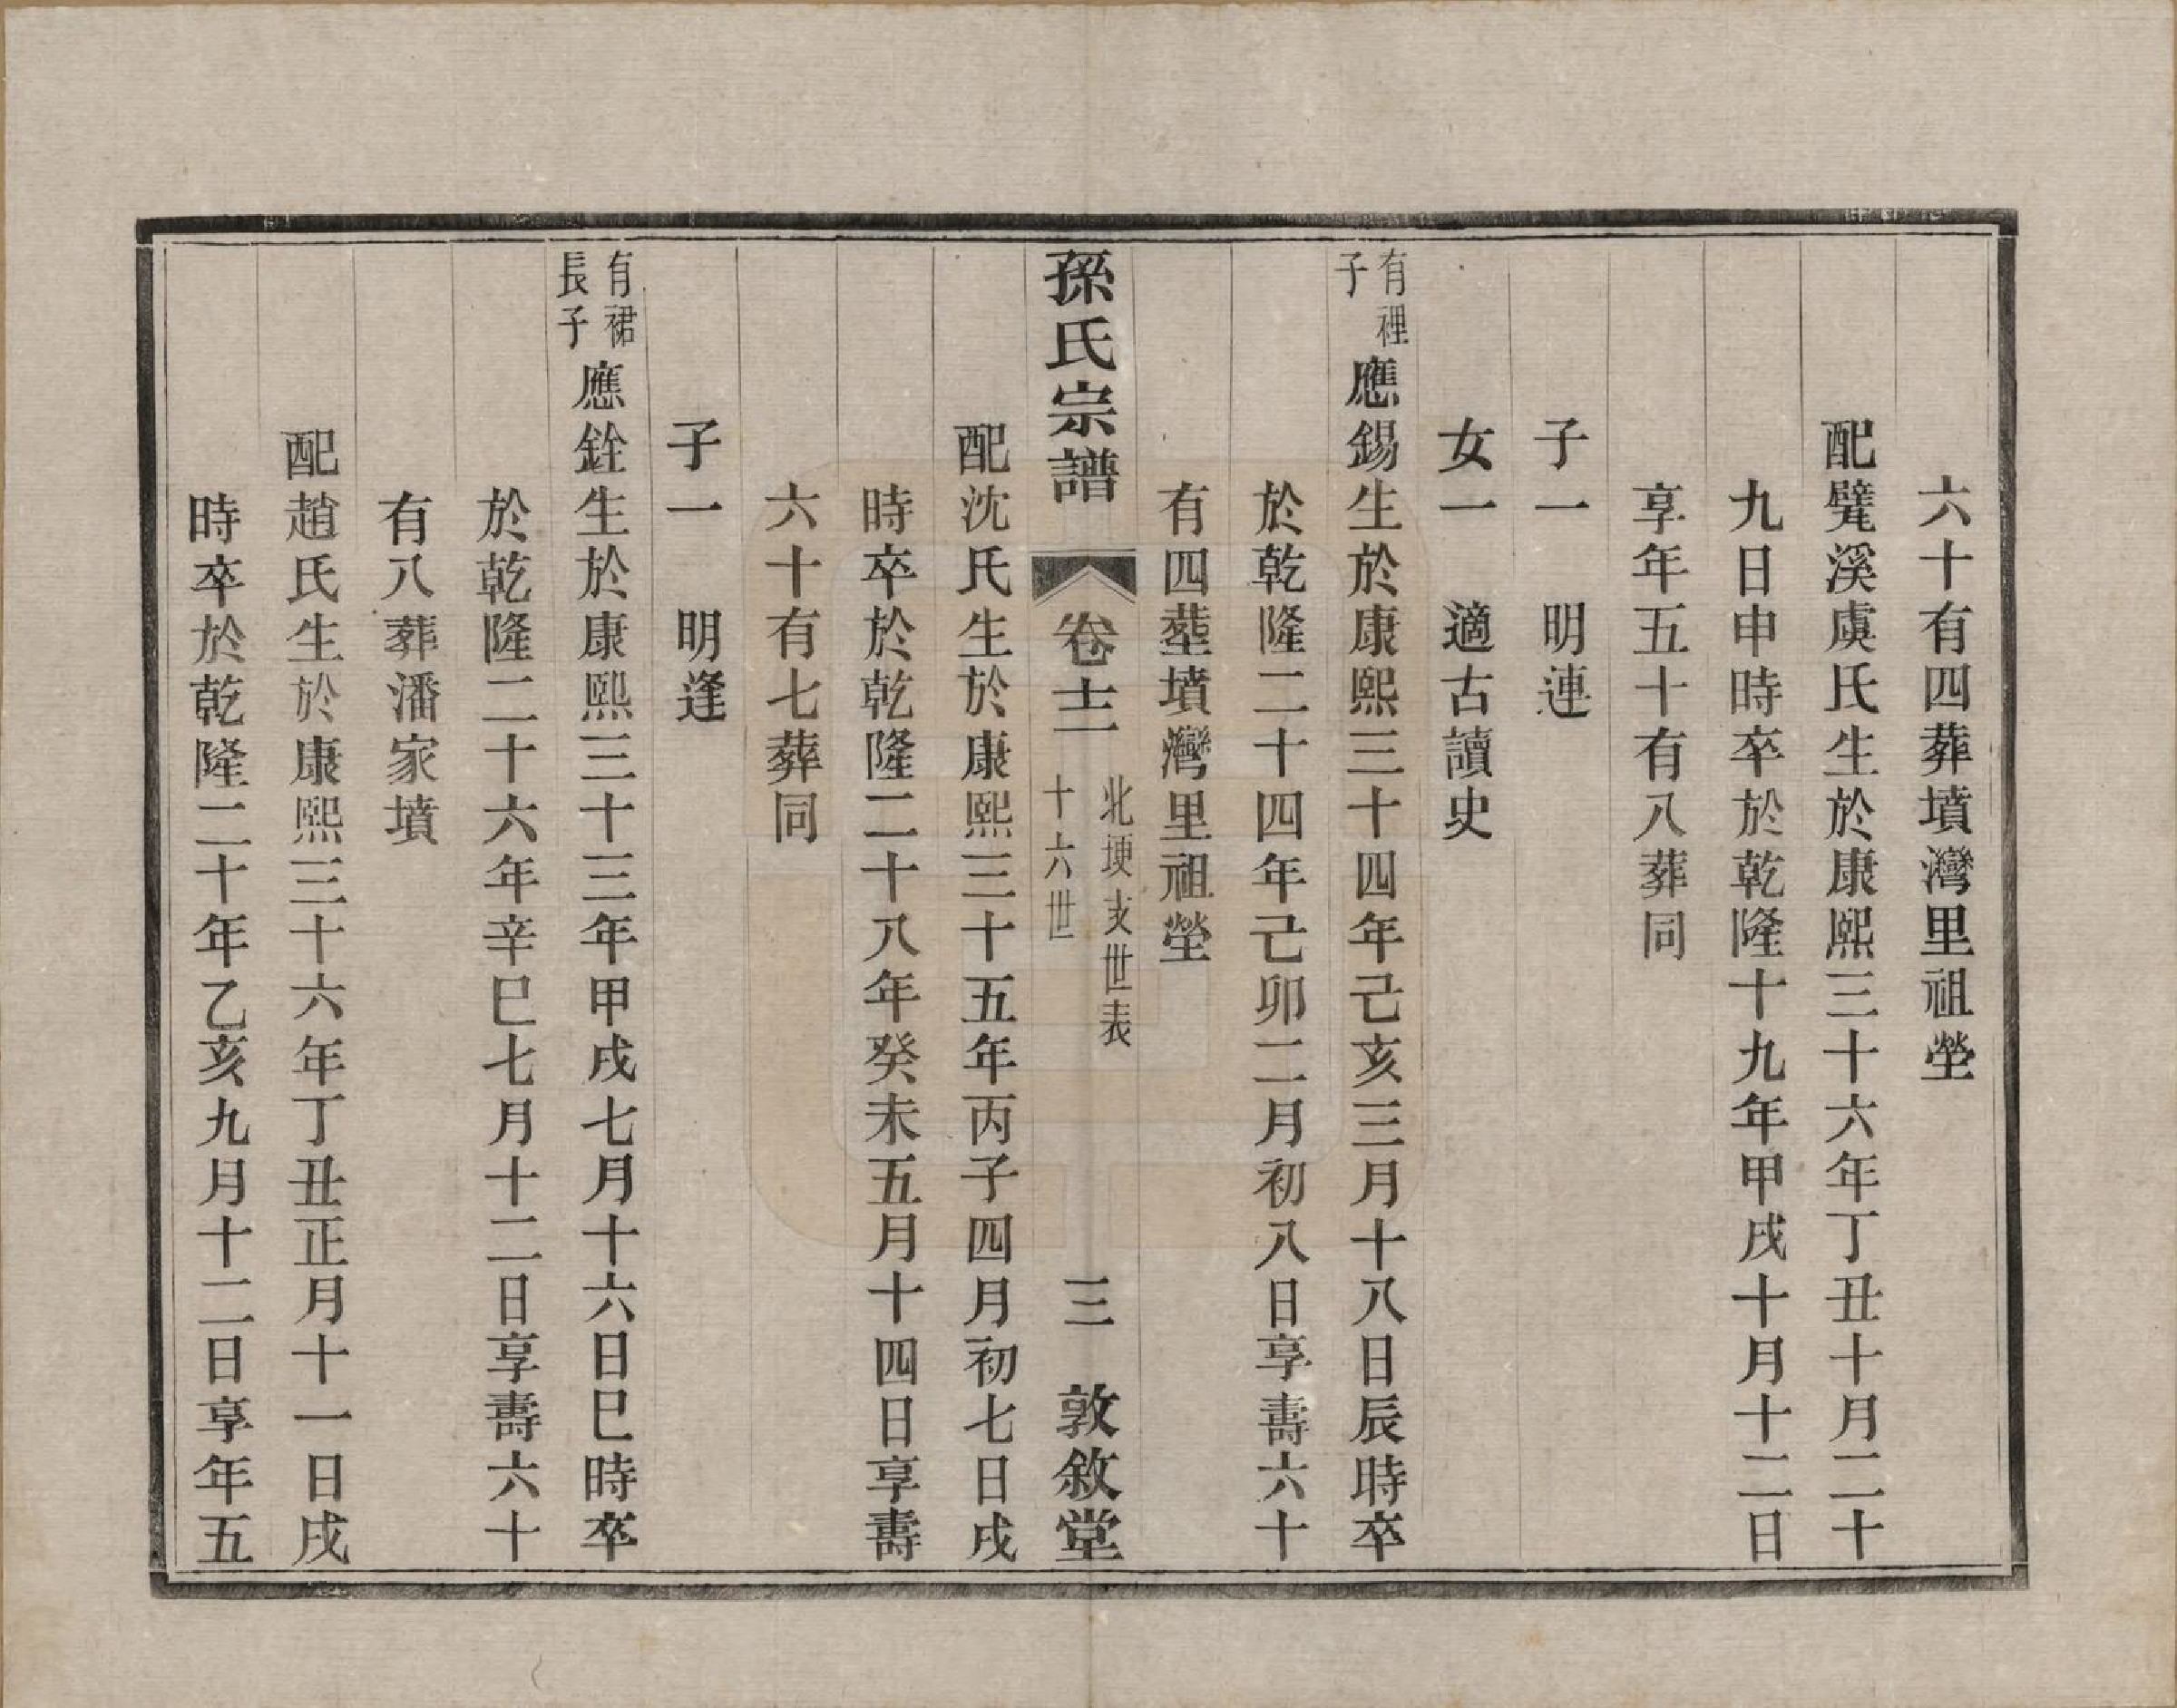 六十有四葬墳灣里祖塋
配躄溪虞氏生於康熙三十六年丁丑十月二十
九日申時卒於乾隆十九年甲戌十月十二日
享年五十有八葬同
子一　明連
女一　適古讀史
有裡
子
應錫生於康熙三十四年己亥三月十八日辰時卒
於乾隆二十四年己卯二月初八日享壽六十
有四葬墳灣里祖塋
孫氏宗譜　卷十二　北埂支世表
十六世
三　敦敘堂
配沈氏生於康熙三十五年丙子四月初七日戌
時卒於乾隆二十八年癸未五月十四日享壽
六十有七葬同
子一　明逢
有裙
長子
應銓生於康熙三十三年甲戌七月十六日巳時卒
於乾隆二十六年辛巳七月十二日享壽六十
有八葬潘家墳
配趙氏生於康熙三十六年丁丑正月十一日戌
時卒於乾隆二十年乙亥九月十二日享年五